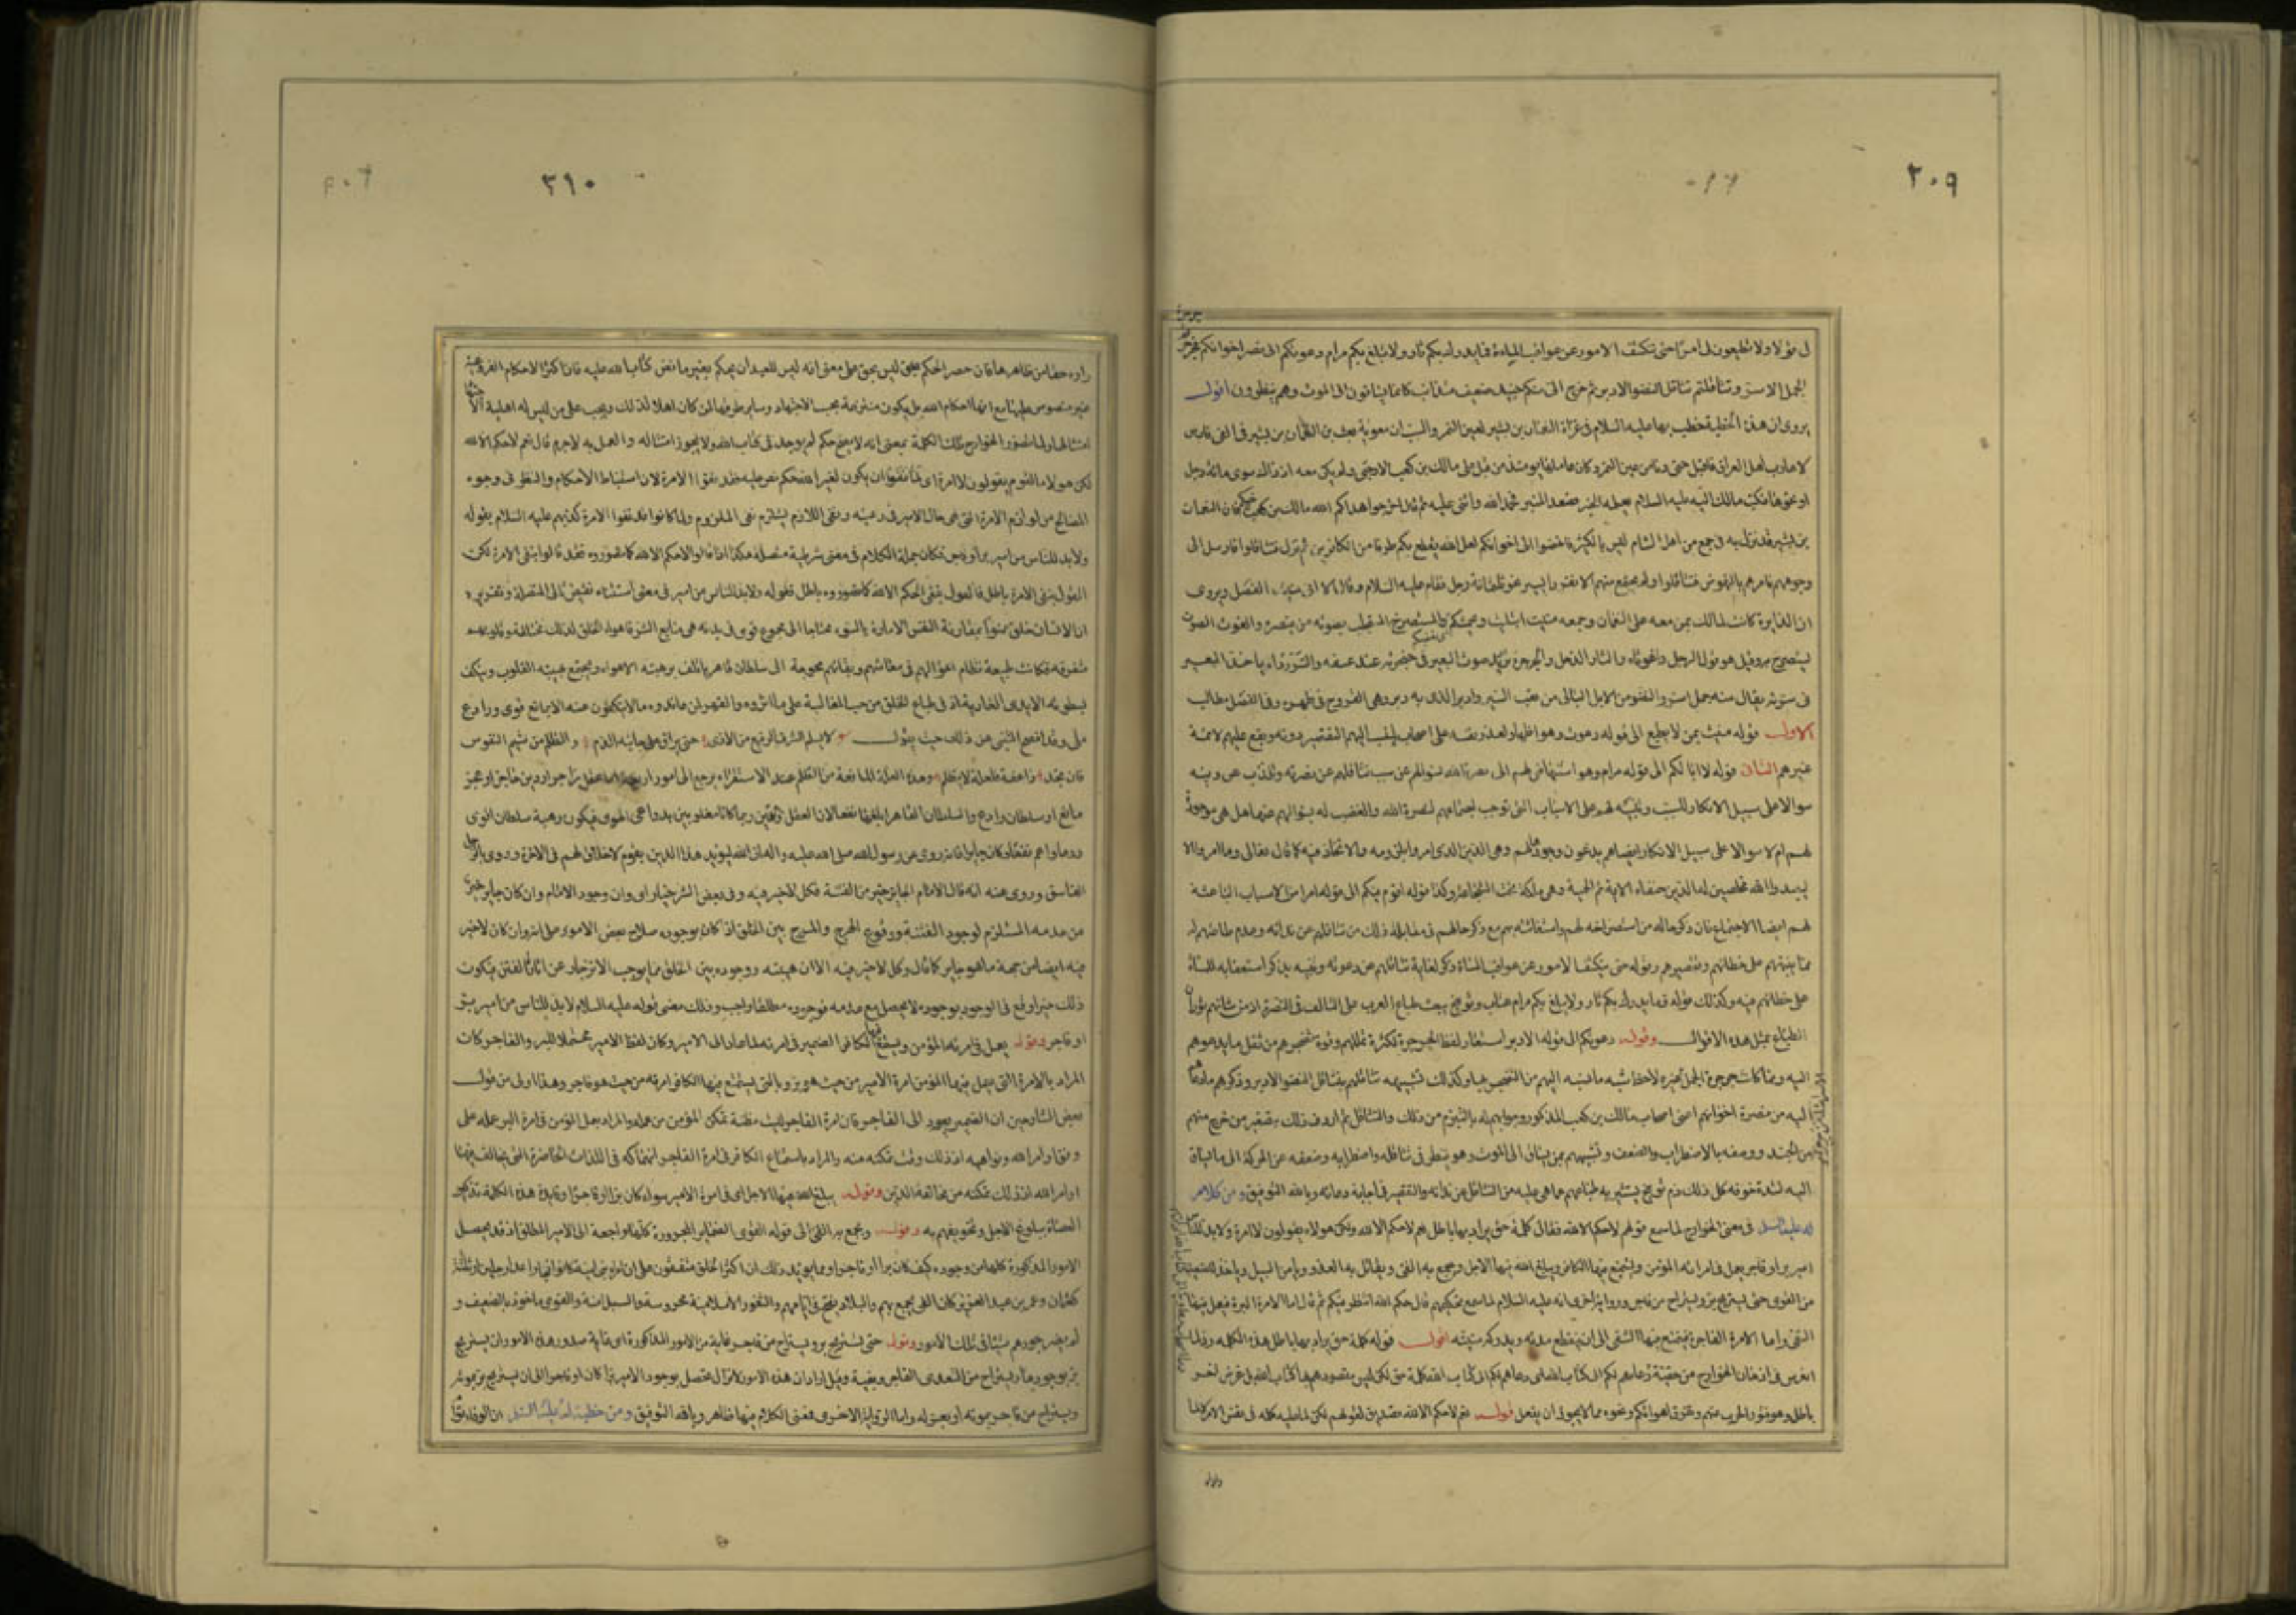 ٢٠٩
لى قولا ولا تطيعون لى امرا حتى تكشف الامور عن عواقب المساءة فما يدرك بكم ثار ولا يبلغ بكم مرام دعوتكم الى نصر اخوانكم فجرجرتم جرجرة
الجمل الاسر وتثاقلتم تثاقل النضو الادبر ثم خرج الى منكم جنيد متذائب ضعيف كانما يساقون الى الموت وهم ينظرون اقول
يروى ان هذه الخطبة خطب بها عليه السلام فى غزاة النعمان بن بشير لعين التمر والسبب ان معوية بعث النعمان بن بشير فى الفى فارس
لارهاب اهل العراق فاقبل حتى دنا من عين التمر وكان عاملها يومئذ من قبل على مالك بن كعب الارحبى ولم يكن معه اذ ذاك سوى مائة رجل
او نحوها فكتب مالك اليه عليه السلام يعلمه الخبر فصعد المنبر فحمد الله واثنى عليه ثم قال اخرجوا هداكم الله الى مالك بن كعب اخيكم فان النعمان
بن بشير قد نزل به فى جمع من اهل الشام ليس بالكثير فانهضوا الى اخوانكم لعل الله يقطع بكم طرفا من الكافرين ثم نزل فتثاقلوا فارسل الى
وجوههم فامرهم بالنهوض فتثاقلوا ولم يجتمع منهم الا نفر يسير نحو ثلثمائة رجل فقام عليه السلام وقال الا انى منيت الفصل ويروى
ان الدايرة كانت لمالك بمن معه على النعمان وجمعه منيت ابتليت ويحمشكم يغضبكم والمستصرخ المستجلب بصوته من ينصره والغوث الصوت
يستصرخ به وقيل هو قول الرجل واغوثاه والثار الذحل والجرجرة ترديد صوت البعير فى حنجرته عند عسفه والسرر داء ياخذ البعير
فى سرته يقال منه جمل اسر والنضو من الابل البالى من تعب السير والادبر الذى به دبر وهى القروح فى ظهره وفى الفصل مطالب
الاول قوله منيت بمن لا يطيع الى قوله دعوت وهو اظهار لعذر نفسه على اصحابه لينسب اليهم التقصير دونه ويقع عليهم لائمة
غيرهم الثانى قوله لا ابا لكم الى قوله مرام وهو استنهاض لهم الى نصرة الله بسوالهم عن سبب تثاقلهم عن نصرته والذب عن دينه
سوالا على سبيل الانكار للسبب وتنبيه لهم على الاسباب التى توجب اجتماعهم لنصرة الله والغضب له بسوالهم عنها هل هى موجودة
لهم ام لا سوالا على سبيل الانكار ايضا هم يدعون وجودها لهم وهى الدين الذى امروا بلزومه والاتحاد فيه كما قال تعالى وما امروا الا
ليعبدوا الله مخلصين له الدين حنفاء الاية ثم الحمية وهى ملكة تحت الشجاعة وكذا قوله اقوم فيكم الى قوله امرا من الاسباب الباعثة
لهم ايضا الاجتماع فان ذكر حاله من استصراخه لهم واستغاثته بهم مع ذكر حالهم فى مقابلة ذلك من تثاقلهم عن ندائه وعدم طاعتهم له
مما ينبههم على خطائهم وتقصيرهم وقوله حتى يكشف الامور عن عواقب المساءة ذكر لغاية تثاقلهم عن دعوته وتنبيه بذكر استعقابه للمساءة
على خطائهم فيه وكذلك قوله فما يدرك بكم ثار ولا يبلغ بكم مرام عتاب وتوبيخ يبعث طباع العرب على التالف فى النصرة اذ من شانهم ثوران
الطباع بمثل هذه الاقوال وقوله دعوتكم الى قوله الادبر استعار لفظ الجرجرة لكثرة تمللهم وقوة تضجرهم من ثقل ما يدعوهم
اليه ولما كانت جرجرة الجمل الاسر اشد من غيره لاحظ شبه ما نسبه اليهم من التضجر بها وكذلك تشبيهه تثاقلهم بتثاقل النضو الادبر وذكرهم ما دعاهم
اليه من نصرة اخوانهم اعنى اصحاب مالك بن كعب المذكور وجوابهم له بالتبرم من ذلك والتثاقل ثم اردف ذلك بتصغير من خرج منهم
من الجند ووصفه بالاضطراب والضعف وتشبيههم بمن يساق الى الموت وهو ينظر فى تثاقله واضطرابه وضعفه عن الحركة الى ما يساق
اليه لشدة خوفه كل ذلك ذم وتوبيخ يستثير به طباعهم عما هى عليه من التثاقل عن ندائه والتقصير فى اجابة دعائه وبالله التوفيق ومن كلام
له عليه السلم فى معنى الخوارج لما سمع قولهم لا حكم الا لله فقال كلمة حق يراد بها باطل نعم لا حكم الا لله ولكن هولاء يقولون لا امرة ولا بد للناس من
امير بر او فاجر يعمل فى امرته المؤمن ويستمتع فيها الكافر ويبلغ الله فيها الاجل ويجمع به الفئ ويقاتل به العدو ويامن السبيل وياخذ للضعيف
من القوى حتى يستريح بر ويستراح من فاجر ورواية اخرى انه عليه السلام لما سمع تحكيمهم قال حكم الله انتظر فيكم ثم قال اما الامرة البرة فيعمل فيها
التقى واما الامرة الفاجرة فيتمتع فيها الشقى الى ان ينقطع مدته ويدركه منيته اقول قوله كلمة حق يراد بها باطل هذه الكلمة رد لما
باطل وهو فتور الحرب عنهم وتفرق اهوائكم ونحوه مما لا يجوز ان يفعل قوله نعم لا حكم الا لله تصديق لقولهم لكن لما عليه كله فى نفس الامر لا لما
٢١٠
رأوه حقا من ظاهرها فان حصر الحكم لله ليس بحق على معنى انه ليس للعبد ان يحكم بغير ما نص كتاب الله عليه فان اكثر الاحكام الفروعية
غير منصوص عليها مع انها احكام الله بل يكون منتزعة بحسب الاجتهاد وساير طرقها لمن كان اهلا لذلك ويجب على من ليس له اهلية الاجتهاد
امتثالها ولما تصور الخوارج تلك الكلمة بمعنى انه لا يصح حكم لم يوجد فى كتاب الله ولا يجوز امتثاله والعمل به لاجرم قال نعم لا حكم الا لله
لكن هولاء القوم يقولون لا امرة اى لما نفوا ان يكون لغير الله حكم لم ينص عليه فقد نفوا الامرة لان استنباط الاحكام والنظر فى وجوه
المصالح من لوازم الامرة التى هى حال الامير فى رعيته ونفى اللازم يستلزم نفى الملزوم ولما كانوا قد نفوا الامرة كذبهم عليه السلام بقوله
ولا بد للناس من امير بر او فاجر فكان جملة الكلام فى معنى شرطية متصلة هكذا اذا قالوا لا حكم الا لله كما تصوروه فقد قالوا بنفى الامرة لكن
القول بنفى الامرة باطل فالقول بنفى الحكم الا لله كما تصوروه باطل فقوله ولا بد للناس من امير فى معنى استثناء نقيض تالى المتصلة وتقديره
ان الانسان خلق ممنوا بمقارنة النفس الامارة بالسوء محتاجا الى مجموع قوى فى بدنه هى منابع الشر فاهواء الخلق لذلك مختلفة وقلوبهم
متفرقة فكانت طبيعة نظام احوالهم فى معاشهم وبقائهم محوجة الى سلطان قاهر ياتلف برهبته الاهواء ويجتمع بهيبته القلوب وينكف
بسطوته الايدى العادية اذ فى طباع الخلق من حب المغالبة على ما اثروه والقهر لمن عاندوه ما لا ينكفون عنه الا بمانع قوى ورادع
ملى وقد افصح المتنبى عن ذلك حيث يقول لا يسلم الشرف الرفيع من الاذى حتى يراق على جوانبه الدم والظلم من شيم النفوس
فان تجد ذا عفة فلعلة لا يظلم وهذه العلة المانعة من الظلم عند الاستقراء يرجع الى امور اربعة اما عقل زاجر او دين حاجز او عجز
مانع او سلطان رادع والسلطان القاهر ابلغها نفعا لان العقل والدين ربما كانا مغلوبين بدواعى الهوى فيكون رهبة سلطان اقوى
ردعا واعم نفعا وان كان جايرا فانه روى عن رسول الله صلى الله عليه واله ان الله ليؤيد هذا الدين بقوم لا خلاق لهم فى الاخرة وروى بالرجل
الفاسق وروى عنه انه قال الامام الجاير خير من الفتنة فكل لا خير فيه وفى بعض الشر خيار اى وان وجود الامام وان كان جايرا خير
من عدمه المستلزم لوجود الفتنة ووقوع الهرج والمرج بين الخلق اذ كان بوجوده صلاح بعض الامور على انه وان كان لا خير
فيه ايضا من جهة ما هو جاير كما قال وكل لا خير فيه الا ان هيبته ووجوده بين الخلق مما يوجب الانزجار عن اثارة الفتن فيكون
ذلك خيرا وقع فى الوجود بوجوده لا يحصل مع عدمه فوجوده مطلقا واجب وذلك معنى قوله عليه السلام لا بد للناس من امير بر
او فاجر وقوله يعمل فى امرته المؤمن ويستمتع فيها الكافر الضمير فى امرته لما عاد الى الامير وكان لفظ الامير محتملا للبر والفاجر كان
المراد بالامرة التى يعمل فيها المؤمن امرة الامير من حيث هو بر وبالتى يستمتع فيها الكافر امرته من حيث هو فاجر وهذا اولى من قول
بعض الشارحين ان الضمير يعود الى الفاجر فان امرة الفاجر ليست مظنة تمكن المؤمن من عمله والمراد بعمل المؤمن فى امرة البر عمله على
وفق اوامر الله ونواهيه اذ ذلك وقت تمكنه منه والمراد باستمتاع الكافر فى امرة الفاجر انهماكه فى اللذات الحاضرة التى يخالف فيها
اوامر الله اذ ذلك تمكنه من مخالفة الدين وقوله يبلغ الله فيها الاجل اى فى امرة الامير سواء كان برا او فاجرا وفايدة هذه الكلمة تذكير
العصاة ببلوغ الاجل وتخويفهم به وقوله ويجمع به الفئ الى قوله القوى الضماير المجرورة كلها راجعة الى الامير المطلق اذ قد يحصل
الامور المذكورة كلها من وجوده كيف كان برا او فاجرا ومما يويد ذلك ان اكثر الخلق متفقون على ان امراء بنى امية كانوا فجارا عدا رجلين او ثلثة
كعثمان وعمر بن عبد العزيز وكان الفئ يجمع بهم والبلاد يفتح فى ايامهم والثغور الاسلامية محروسة والسبل امنة والقوى ماخوذ بالضعيف و
لم يضر جورهم شيئا فى تلك الامور وقوله حتى يستريح بر ويستراح من فاجر غاية من الامور المذكورة اى غاية صدور هذه الامور ان يستريح
بر بوجودها ويستراح من تعدى الفاجر وبغيه وقيل اراد ان هذه الامور لا تزال تحصل بوجود الامير برا كان او فاجرا الى ان يستريح بر بموته
ويستراح من فاجر بموته او بعزله واما الرواية الاخرى فمعنى الكلام فيها ظاهر وبالله التوفيق ومن خطبة له عليه السلم ان الوفاء توأم